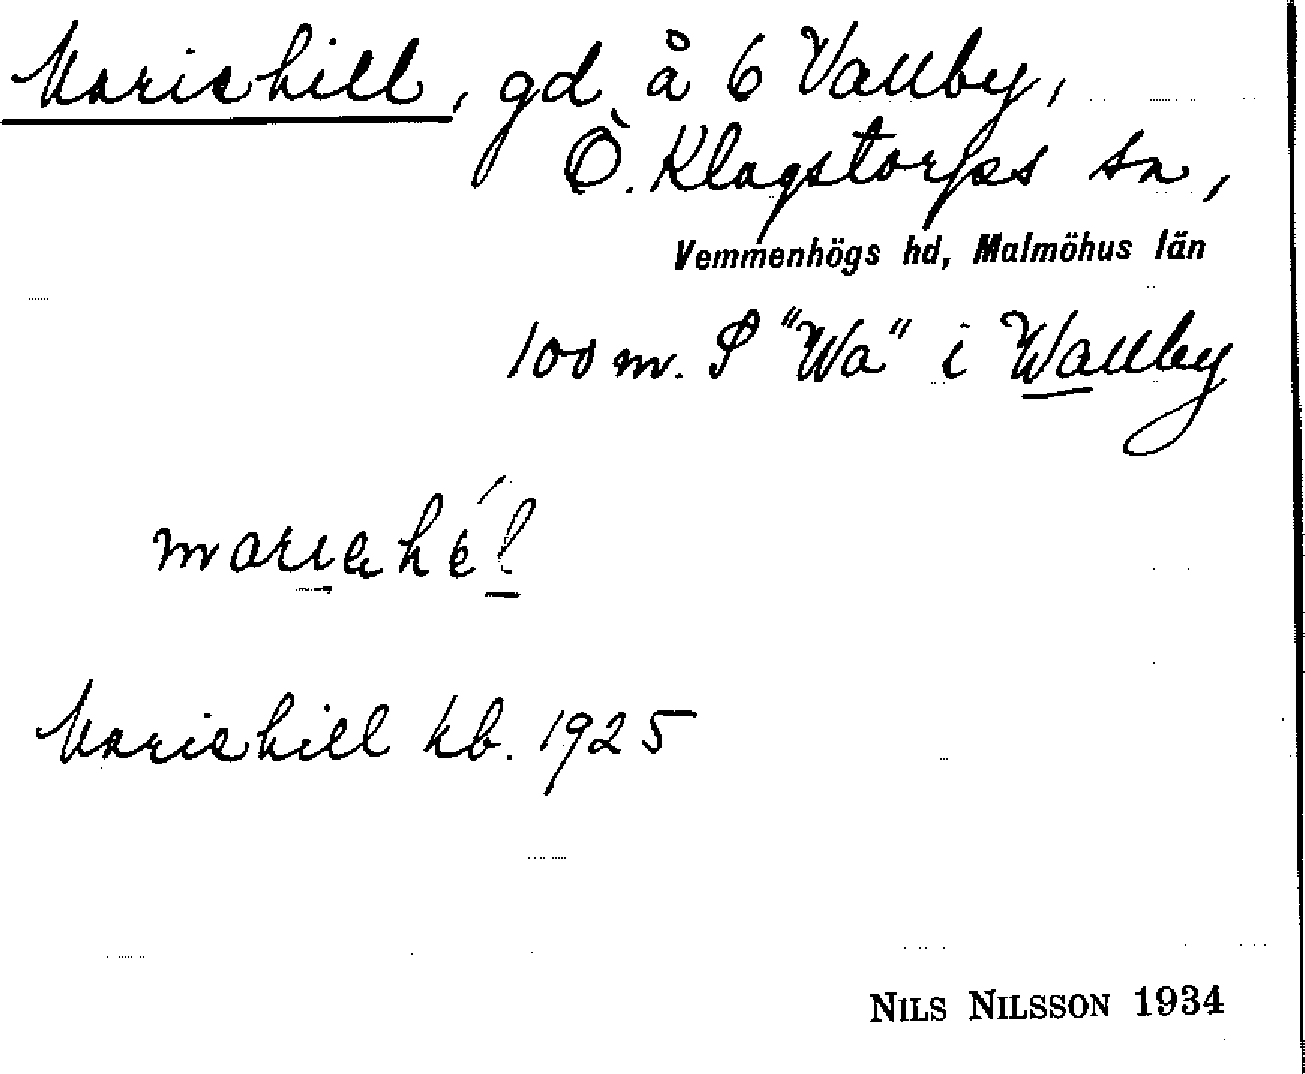 Mariehill, gd å 6 Vallby,
Ö. Klagstorps sn,
Vemmenhögs hd, Malmöhus län
100 m. S "Wa" i Wallby
mariahé́l
Mariehill kb. 1925
NILS NILSSON 1934